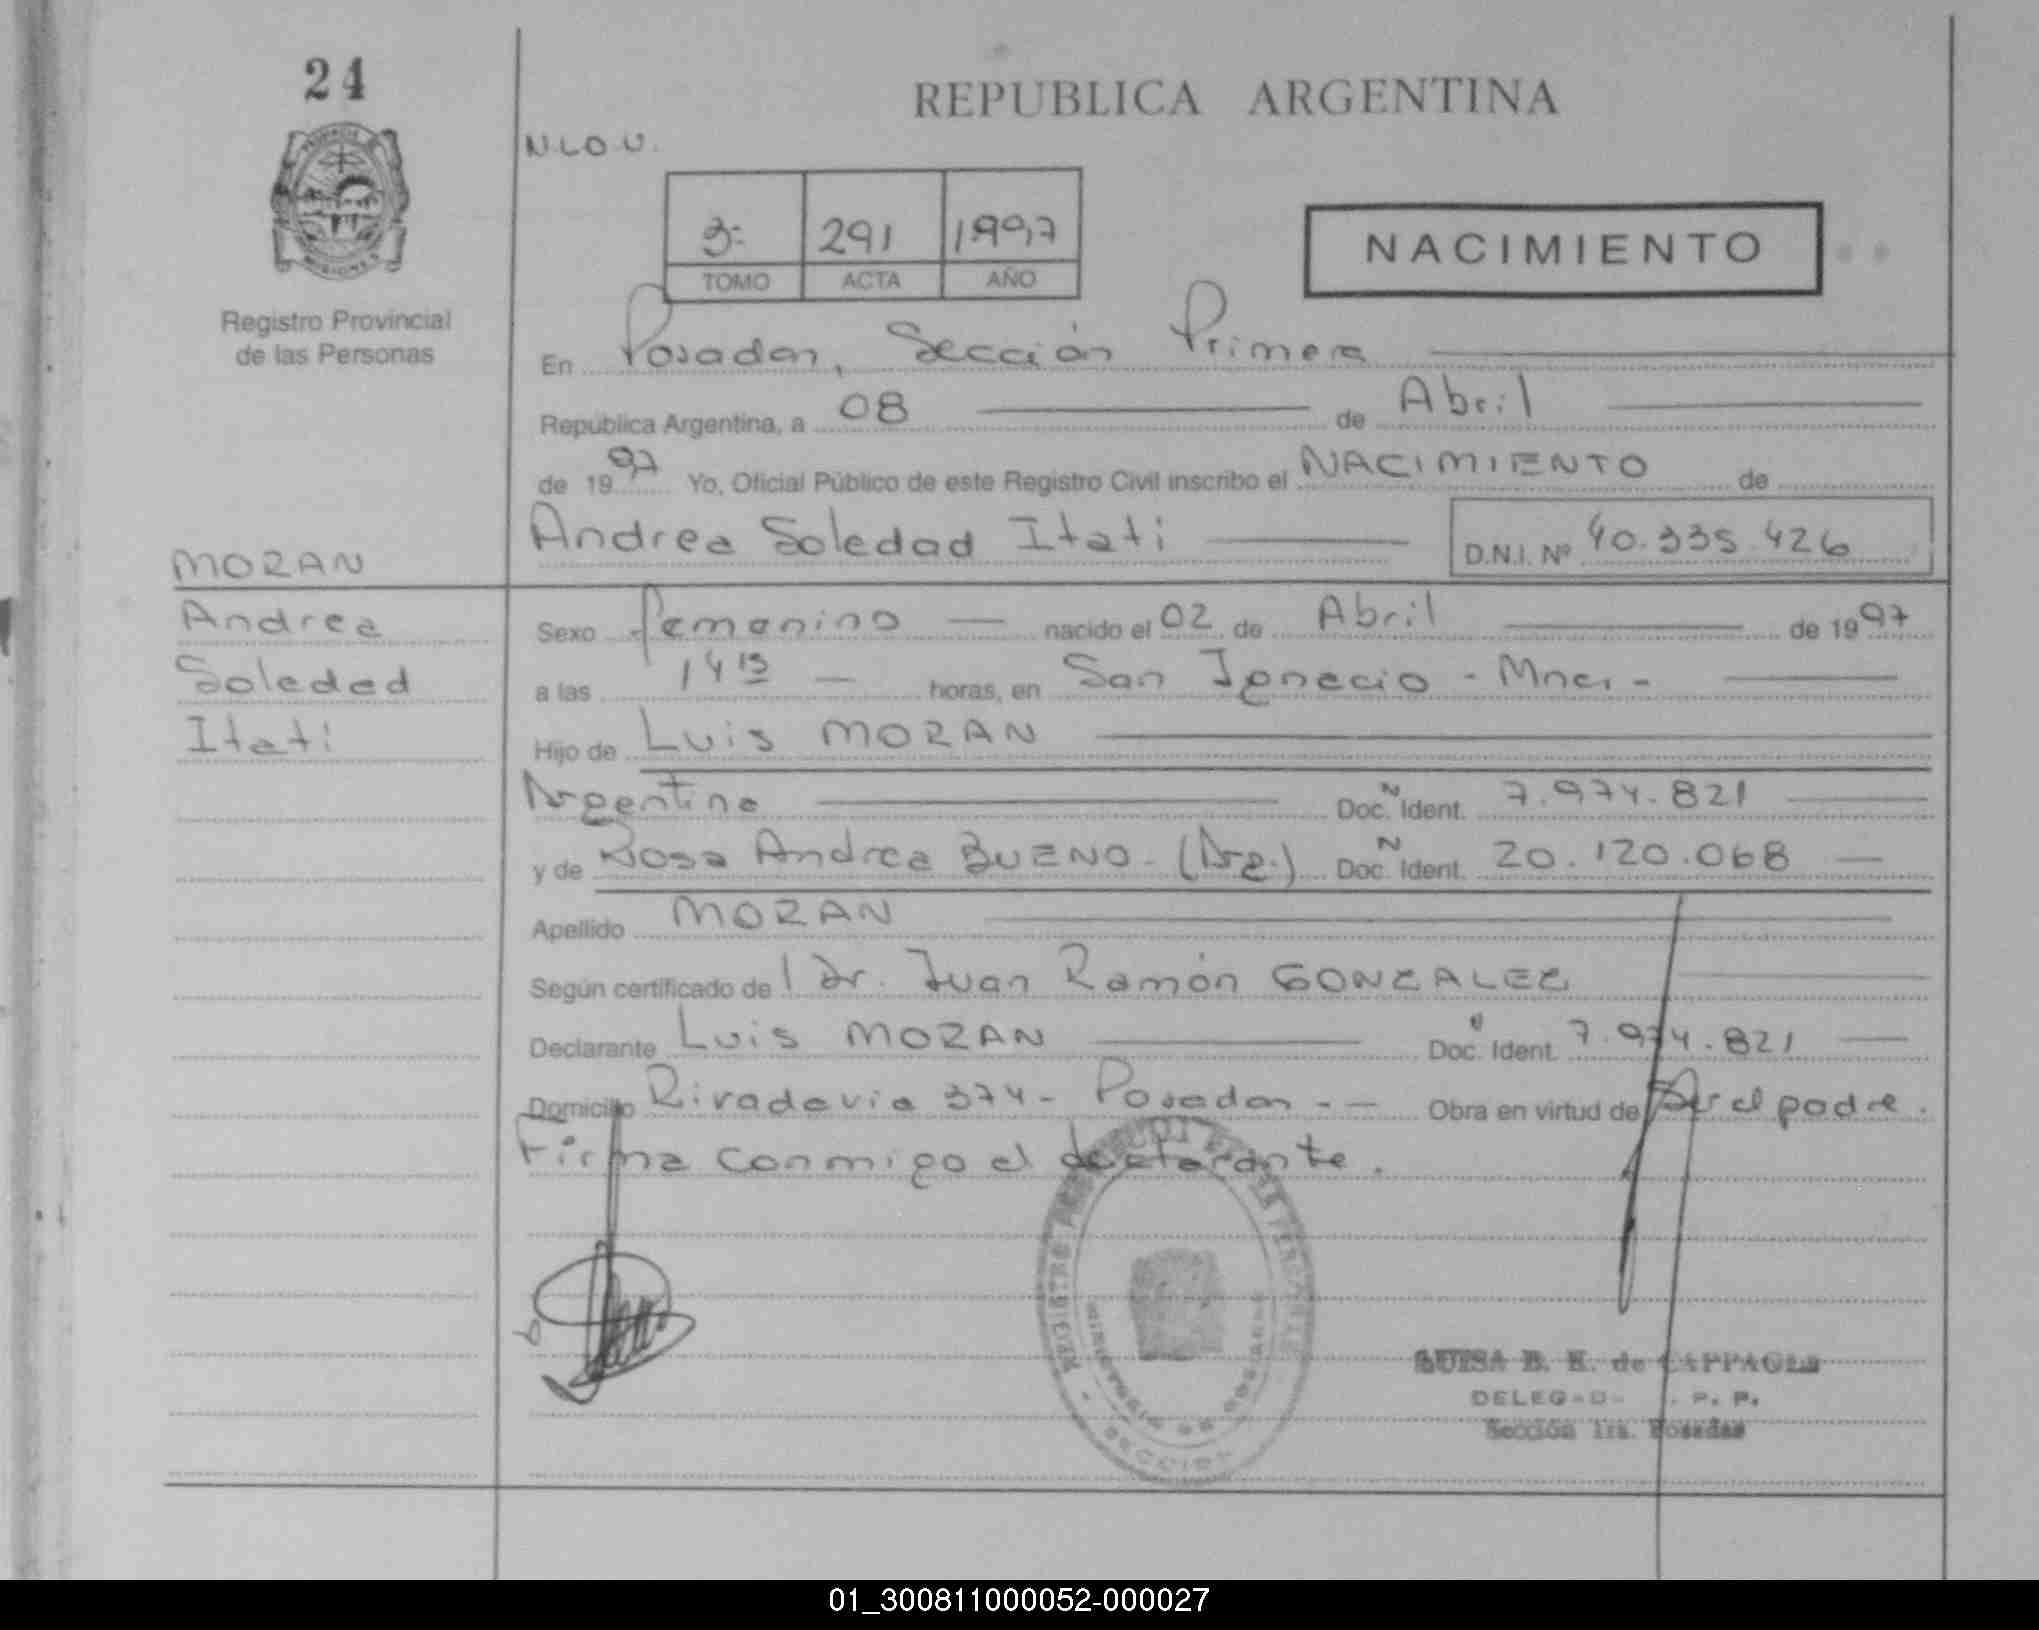 24
REPUBLICA ARGENTINA
N.L.O.U.
3= 291 1997
TOMO ACTA AÑO
NACIMIENTO
PROVINCIA
MISIONES
Registro Provincial
de las Personas
En Posadas, Sección Primera
República Argentina, a 08 de Abril
de 1997 Yo, Oficial Público de este Registro Civil inscribo el NACIMIENTO de
Andrea Soledad Itati D.N.I. Nº 40.335.426
MORAN
Andrea
Soledad
Itati
Sexo femenino nacido el 02 de Abril de 1997
a las 14 15 horas, en San Ignacio - Mnes -
Hijo de Luis MORAN
Argentino Doc. Ident. 7.974.821
y de Rosa Andrea BUENO - (Arg.) Doc. Ident. 20.120.068
Apellido MORAN
Según certificado del Dr. Juan Ramón GONZALEZ
Declarante Luis MORAN Doc. Ident. 7.974.821
Domicilio Rivadavia 374 - Posadas - - Obra en virtud de Ser el padre.
Firma conmigo el declarante.
LUISA B. K. de CAPPAGLI
DELEG-D- . P. P.
Sección 1ra. Posadas
01_300811000052-000027